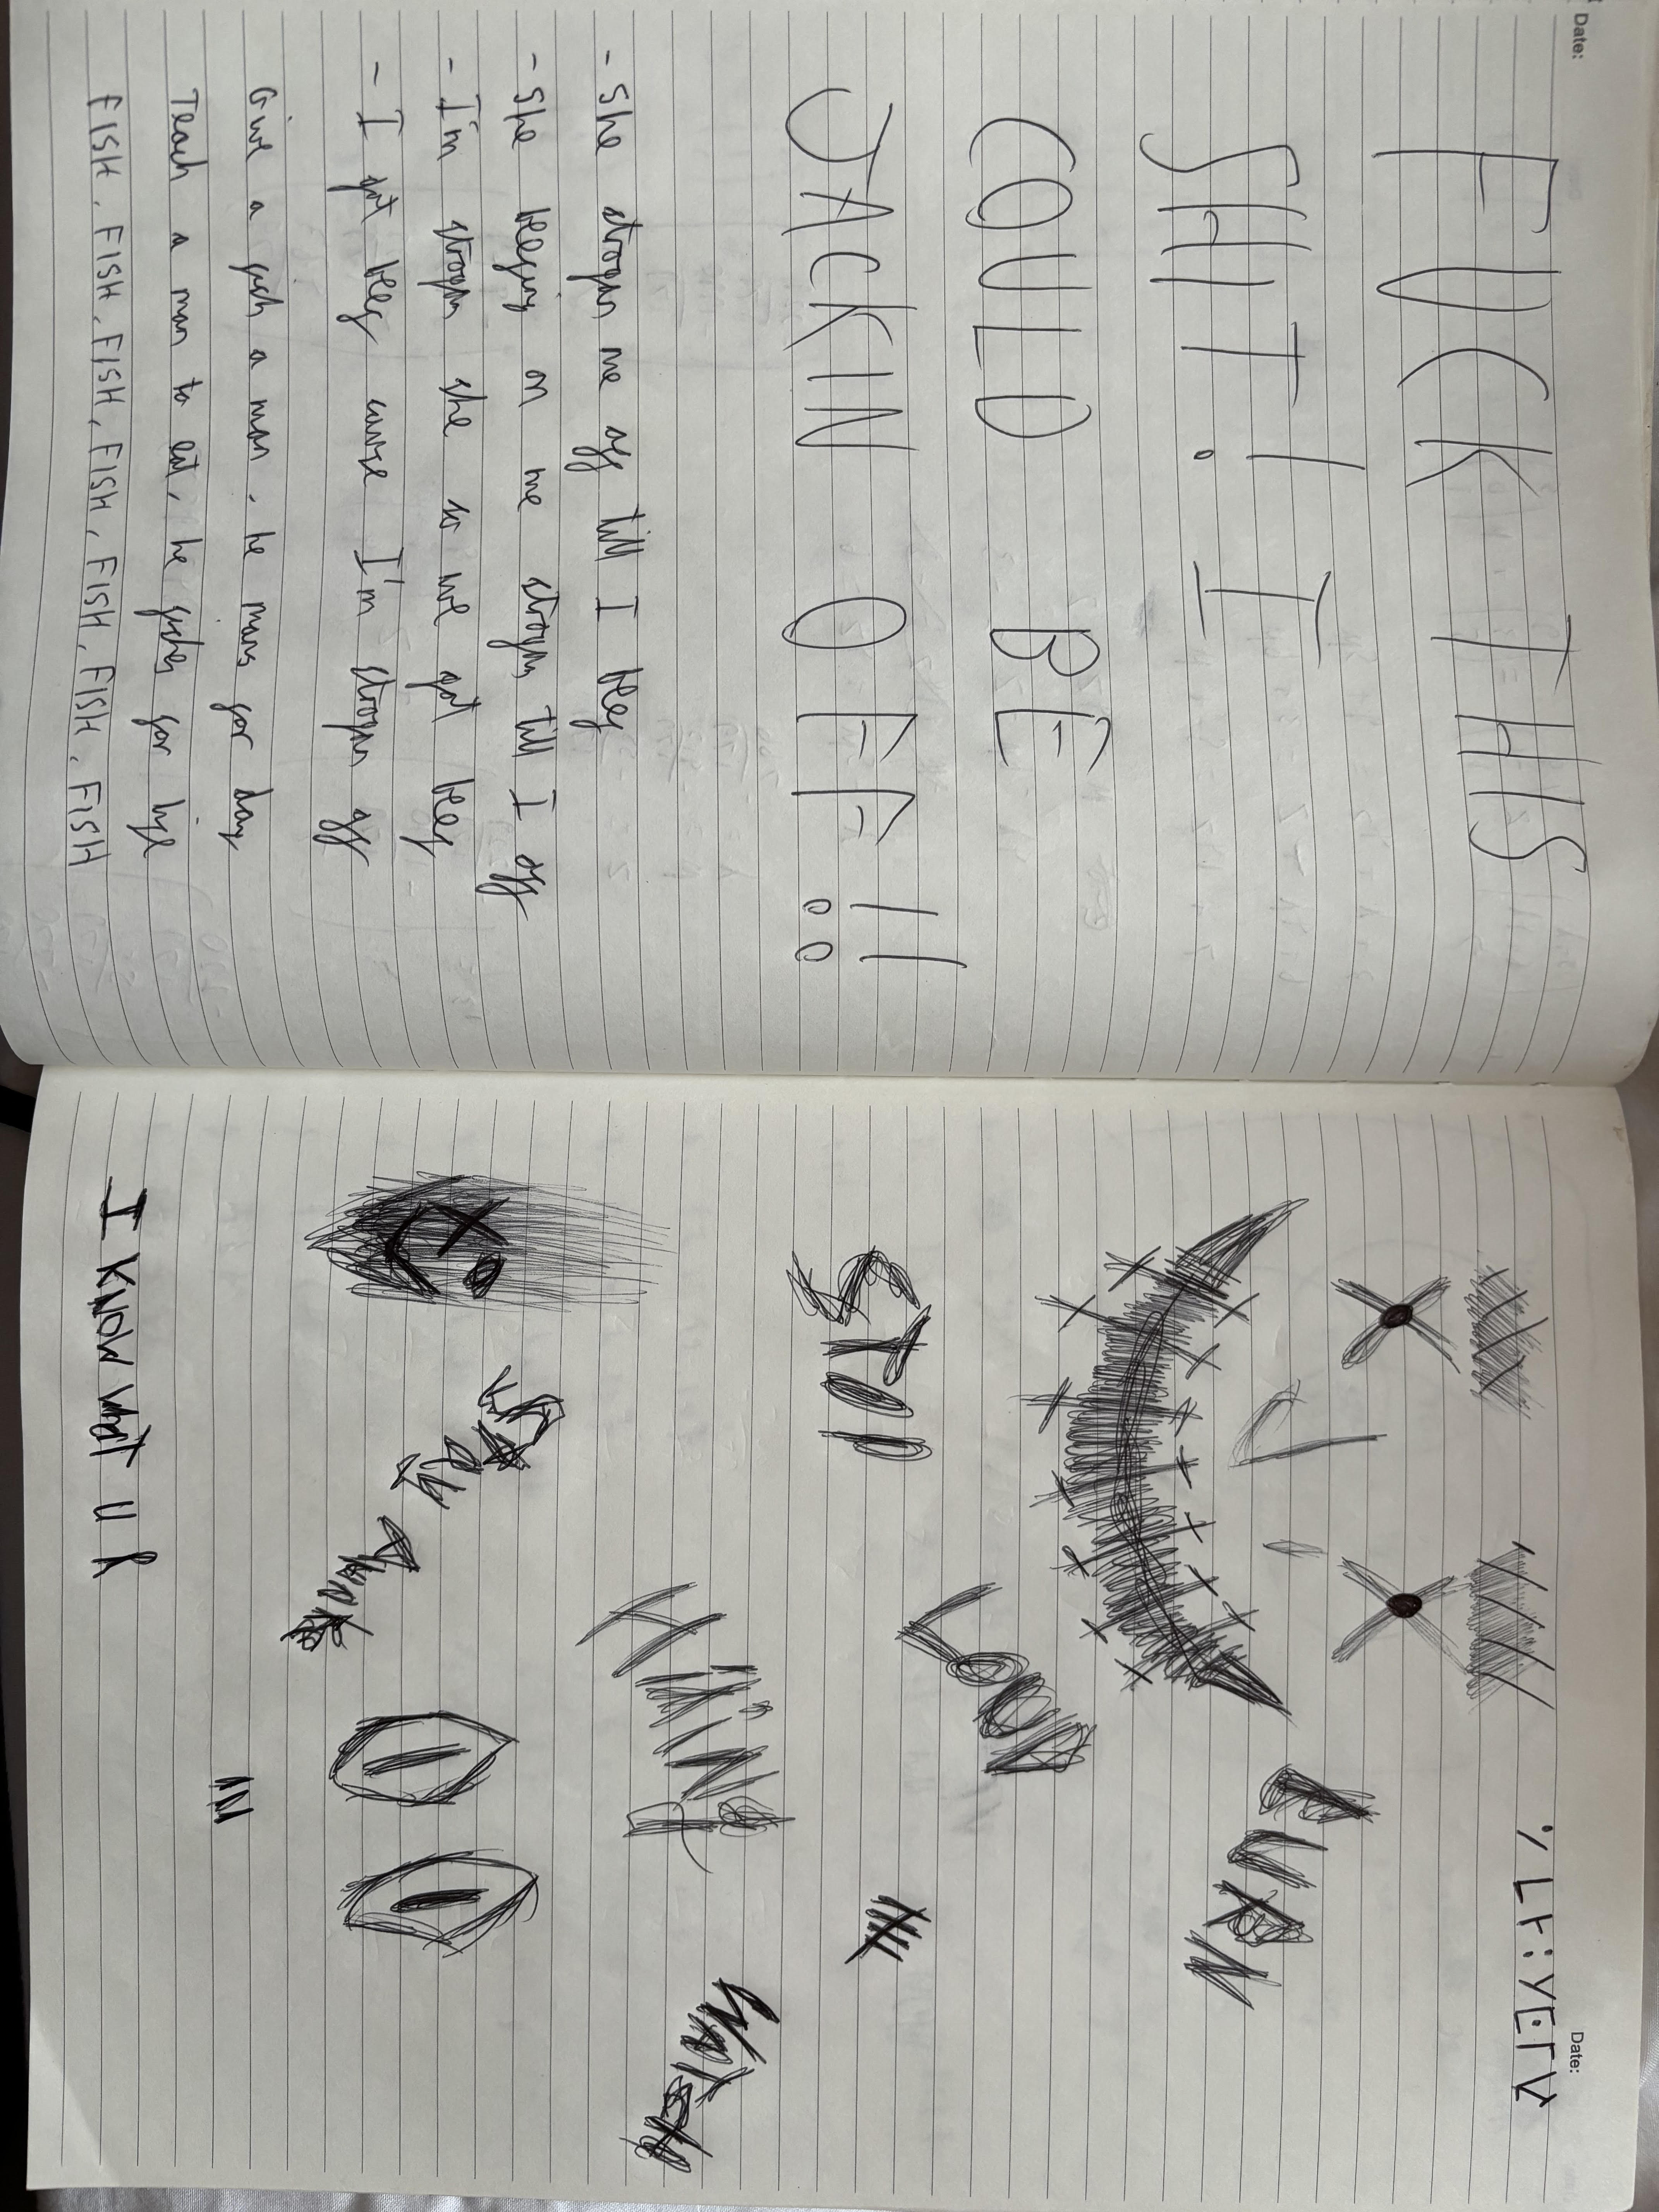 Date:
FUCK THIS
SHIT! I
COULD BE
JACKIN OFF!!
- She stroger me off till I bleg
- She bleging on me stroger till I off
- I'm stroger she so we got bleg
- I got bleg cause I'm stroger off
Give a fish a man, he mans for day
Teach a man to eat, he fishes for life
FISH, FISH, FISH, FISH, FISH, FISH, FISH
Date:
BURN
LOOK
STOP
THINK
WATCH
STAY AWAKE
I KNOW WHAT U R